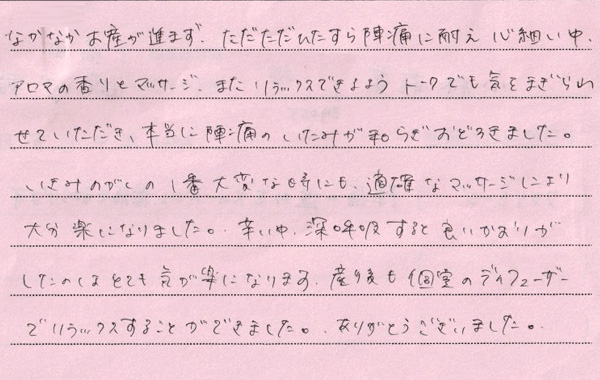 なかなかお産が進まず、ただただひたすら陣痛に耐え心細い中、
アロマの香りとマッサージ、またリラックスできるようトークでも気をまぎらわ
せていただき、本当に陣痛のいたみが和らぎおどろきました。
いきみのがしの1番大変な時にも、適確なマッサージにより
大分楽になりました。辛い中、深呼吸すると良いかおりが
したのはとても気が楽になります。産後も個室のディフューザー
でリラックスすることができました。ありがとうございました。